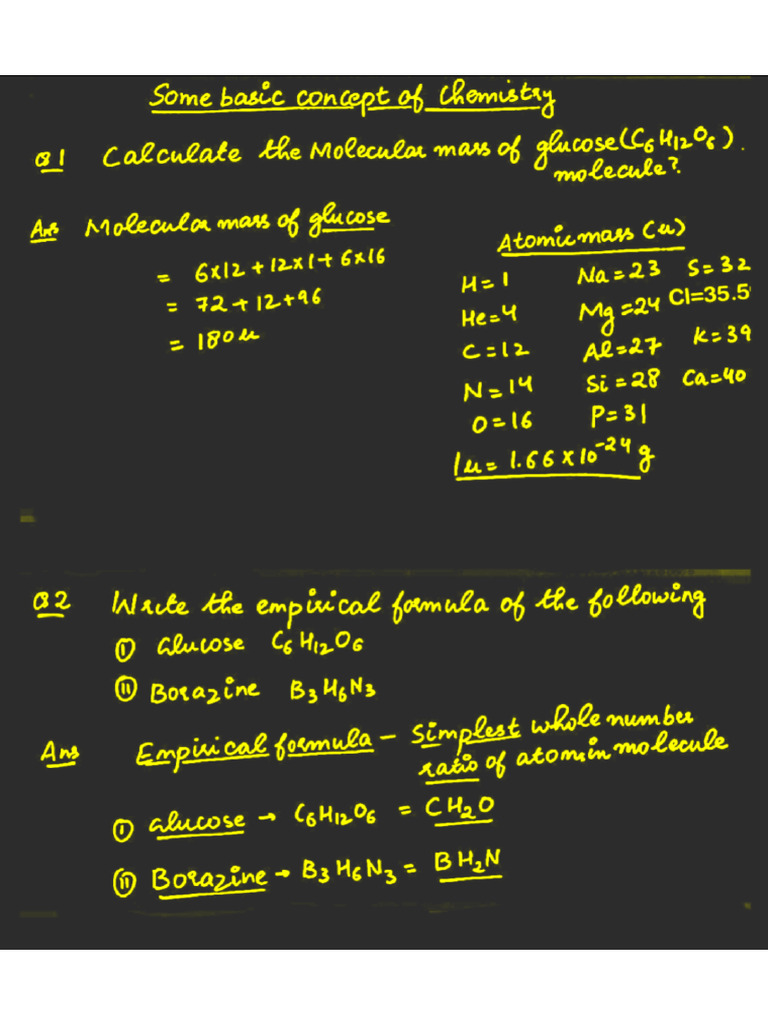 Some basic concept of Chemistry
Q1 Calculate the Molecular mass of glucose (C₆H₁₂O₆).
molecule?
Ans Molecular mass of glucose
= 6×12 + 12×1 + 6×16
= 72 + 12 + 96
= 180 u
Atomic mass (u)
H=1 Na=23 S=32
He=4 Mg=24 Cl=35.5
C=12 Al=27 K=39
N=14 Si=28 Ca=40
O=16 P=31
1u = 1.66 × 10⁻²⁴ g
Q2 Write the empirical formula of the following
(i) Glucose C₆H₁₂O₆
(ii) Borazine B₃H₆N₃
Ans Empirical formula – Simplest whole number
ratio of atoms in molecule
(i) Glucose → C₆H₁₂O₆ = CH₂O
(ii) Borazine → B₃H₆N₃ = BH₂N